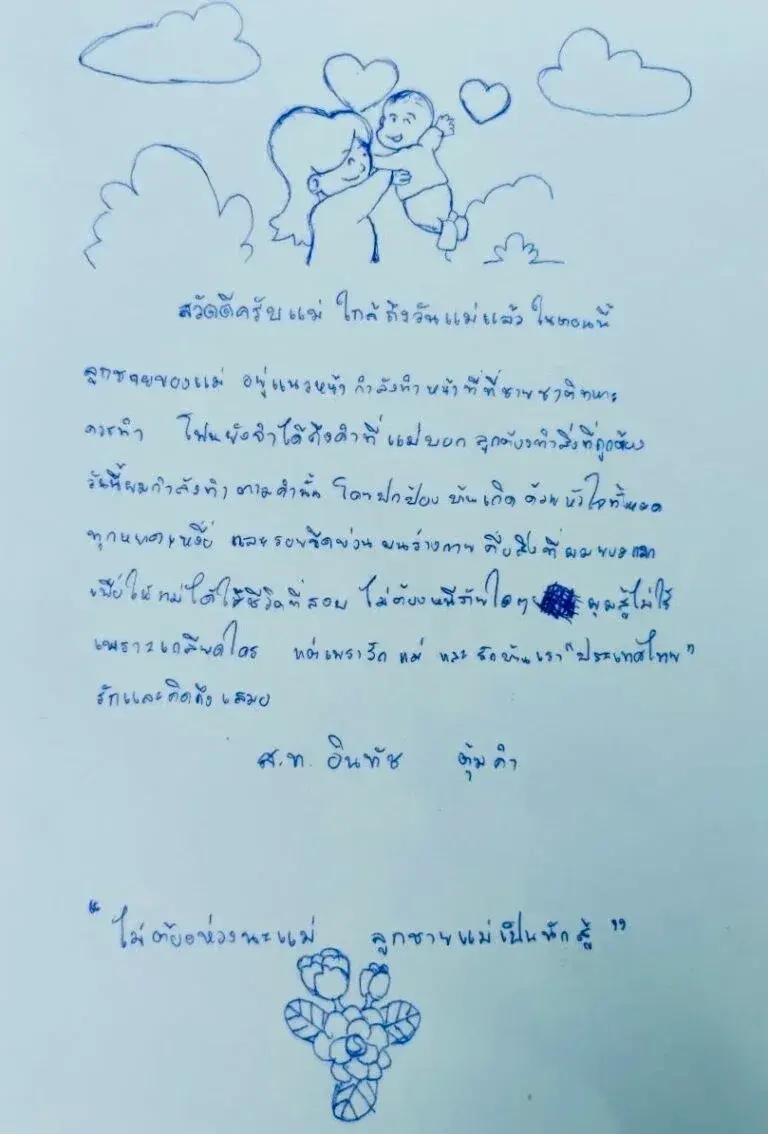 สวัดดีครับแม่ ใกล้ถึงวันแม่แล้ว ในตอนนี้
ลูกชายของแม่ อยู่แนวหน้า กำลังทำหน้าที่ที่ชายชาติทหาร
ควรทำ ยังจำได้ถึงคำที่ แม่บอก ลูกต้องทำสิ่งที่ถูกต้อง
วันนี้ผมกำลังทำ ตามคำนั้น โดยปกป้อง บ้านเกิด ด้วย หัวใจทั้งหมด
ทุกหยาดเหงื่อ และรอยขีดข่วน บนร่างกาย คือสิ่งที่ ผมขอแลก
เพื่อให้แม่ได้ใช้ชีวิตที่สงบ ไม่ต้องหนีภัยใดๆ ผมสู้ไม่ใช่
เพราะเกลียดใคร แต่เพราะรัก แม่ และ รักบ้านเรา "ประเทศไทย"
รักและคิดถึง เสมอ
ส.ท. อินทัช ตุ้มคำ
"ไม่ต้องห่วงนะแม่ ลูกชายแม่เป็นนักสู้"